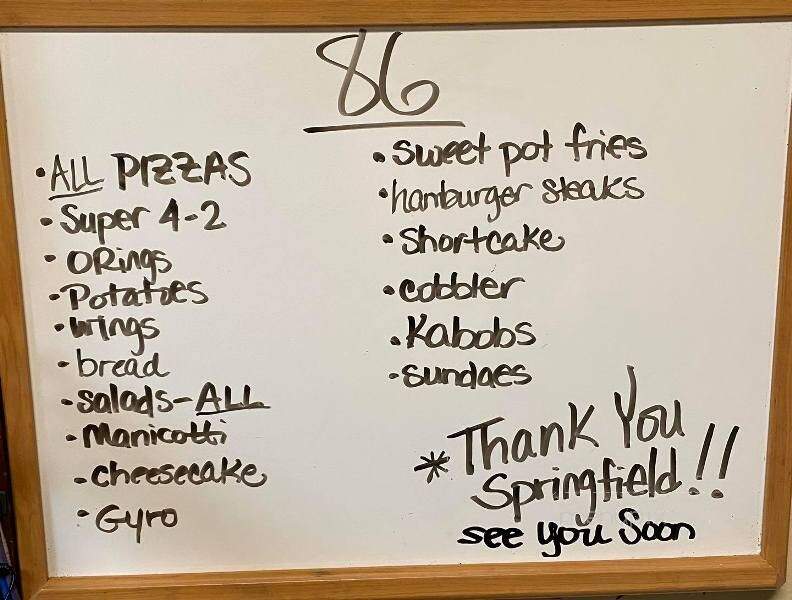 86
• ALL PIZZAS
• Super 4-2
• ORings
• Potatoes
• wings
• bread
• salads - ALL
• Manicotti
• cheesecake
• Gyro
• sweet pot fries
• hamburger steaks
• Shortcake
• cobbler
• Kabobs
• sundaes
* Thank You
Springfield!!
see you Soon